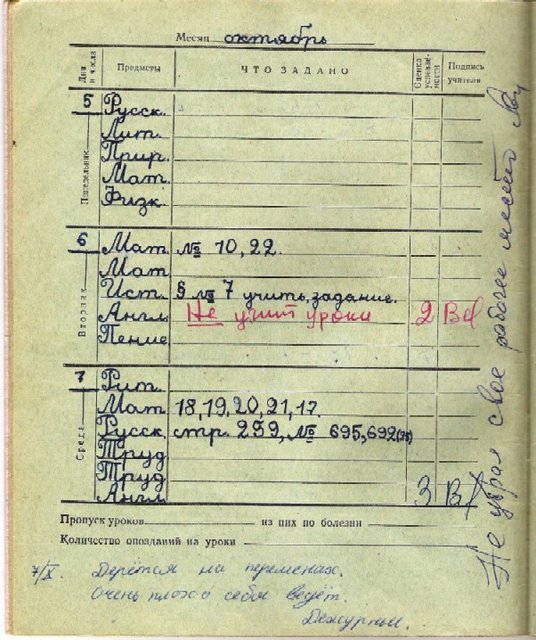 Месяц октябрь
Дни и числа Предметы ЧТО ЗАДАНО Оценка успевае-мости Подпись учителя
Понедельник
5 Русск.
Лит.
Прир.
Мат.
Физк.
Вторник
6 Мат. № 10, 22.
Мат
Ист. § № 7 учить, задание.
Англ. Не учит уроки 2
Пение
Среда
7 Рит.
Мат. 18, 19, 20, 21, 17.
Русск. стр. 259, № 695, 692
Труд
Труд
Англ 3
Пропуск уроков из них по болезни
Количество опозданий на уроки
7/X. Дерётся на переменах.
Очень плохо себя ведёт.
Дежурный.
Не убрал свое рабочее место